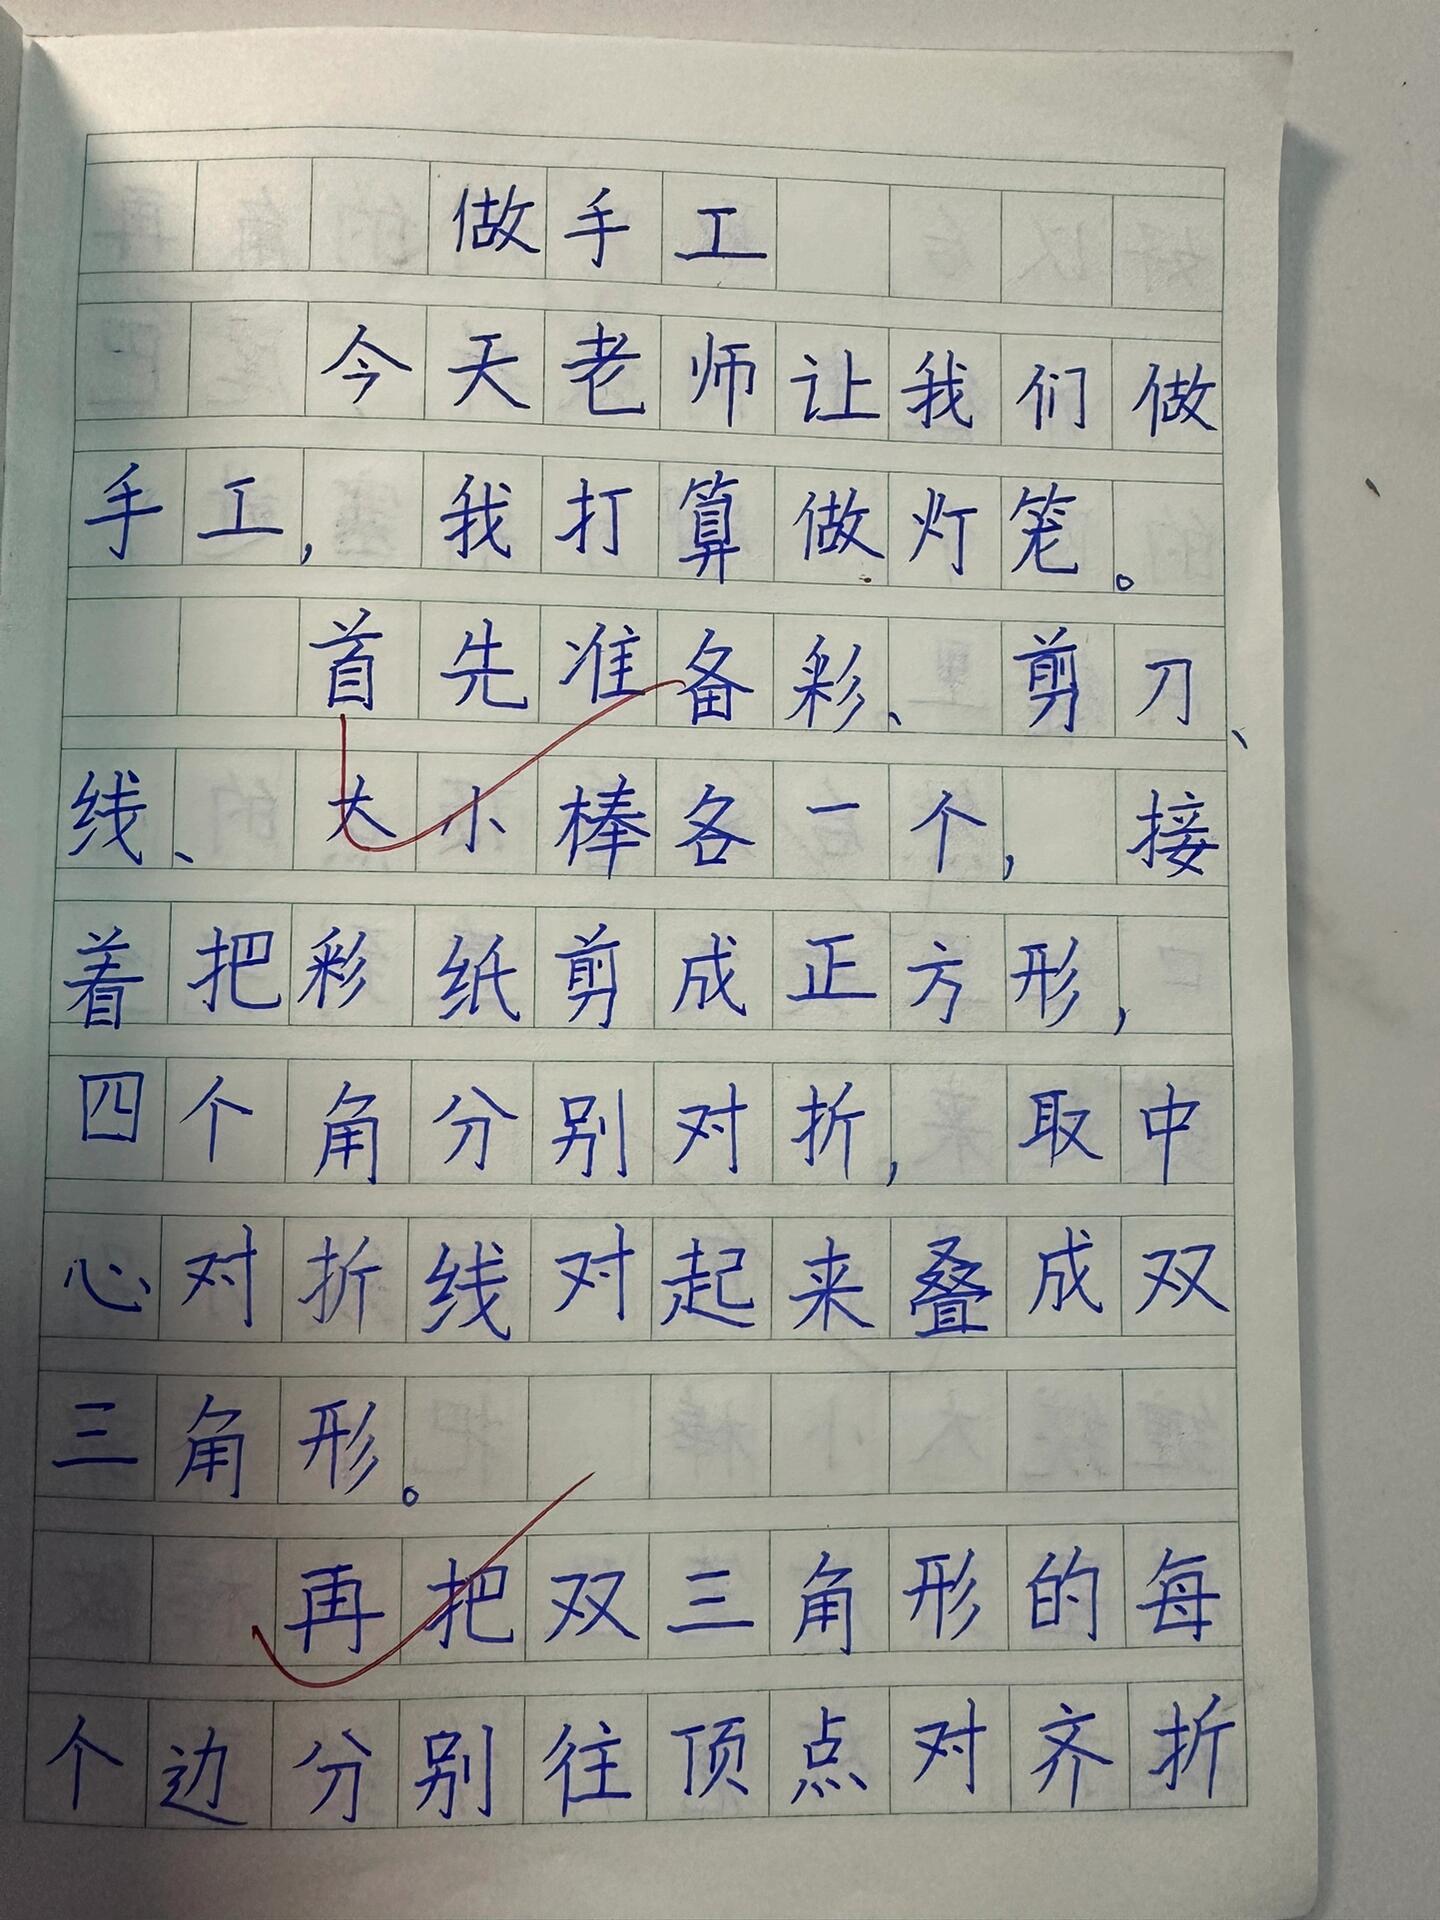 做手工
今天老师让我们做
手工，我打算做灯笼。
首先准备彩、剪刀、
线、大小棒各一个，接
着把彩纸剪成正方形，
四个角分别对折，取中
心对折线对起来叠成双
三角形。
再把双三角形的每
个边分别往顶点对齐折